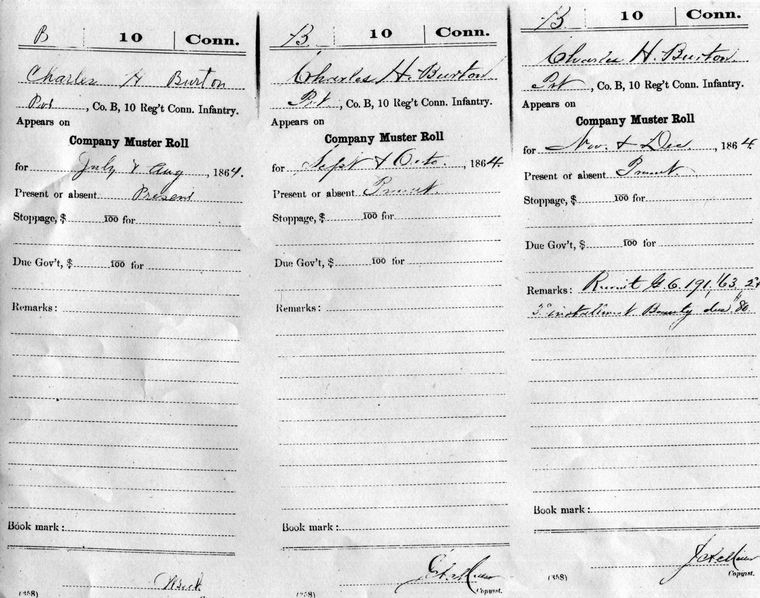 B | 10 | Conn.
Charles H Burton
Pvt, Co. B, 10 Reg't Conn. Infantry.
Appears on
Company Muster Roll
for July & Aug, 1864.
Present or absent Present
Stoppage, $ 100 for
Due Gov't, $ 100 for
Remarks:
Book mark:
(358)
B | 10 | Conn.
Charles H. Burton
Pvt, Co. B, 10 Reg't Conn. Infantry.
Appears on
Company Muster Roll
for Sept & Octo., 1864.
Present or absent Present.
Stoppage, $ 100 for
Due Gov't, $ 100 for
Remarks:
Book mark:
(358)
Copyist.
B | 10 | Conn.
Charles H. Burton
Pvt, Co. B, 10 Reg't Conn. Infantry.
Appears on
Company Muster Roll
for Nov. & Dec, 1864.
Present or absent Present.
Stoppage, $ 100 for
Due Gov't, $ 100 for
Remarks: Recruit G.O. 191, '63, 2d
3d installment Bounty due $80
Book mark:
(358)
Copyist.